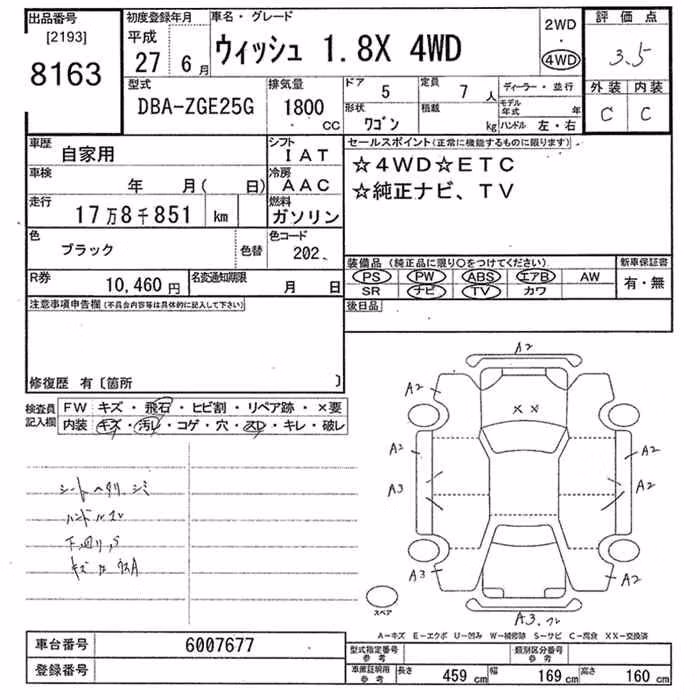 出品番号
[2193]
8163
初度登録年月
平成
27 6月
車名・グレード
ウィッシュ 1.8X 4WD
2WD
・
4WD
評価点
3.5
外装 内装
C C
型式
DBA-ZGE25G
排気量
1800
cc
ドア 5
定員 7人
形状 ワゴン
積載 kg
ディーラー・並行
モデル年式 年
ハンドル 左・右
車歴 自家用
シフト IAT
車検 年 月( 日)
冷房 AAC
走行 17万8千851 km
燃料 ガソリン
色 ブラック 色替
色コード 202、
R券 10,460円
名変通知期限 月 日
セールスポイント(正常に機能するものに限ります)
☆4WD☆ETC
☆純正ナビ、TV
装備品(純正品に限り○をつけてください)
新車保証書
PS PW ABS エアB AW
SR ナビ TV カワ
有・無
後日品
注意事項申告欄(不具合内容等は具体的に記入して下さい)
修復歴 有〔箇所 〕
検査員記入欄
FW キズ・飛石・ヒビ割・リペア跡・×要
内装 キズ・汚レ・コゲ・穴・スレ・キレ・破レ
シートヘタリ、シミ
ハンドルスレ
下回りS
A2
A2
A2
A2
A2
A3
A2
A3
A2
A3
××
スペア
A-キズ E-エクボ U-凹み W-補修跡 S-サビ C-腐食 XX-交換済
車台番号 6007677
登録番号
型式指定番号参考
類別区分番号参考
車庫証明用参考
長さ 459cm 幅 169cm 高さ 160cm